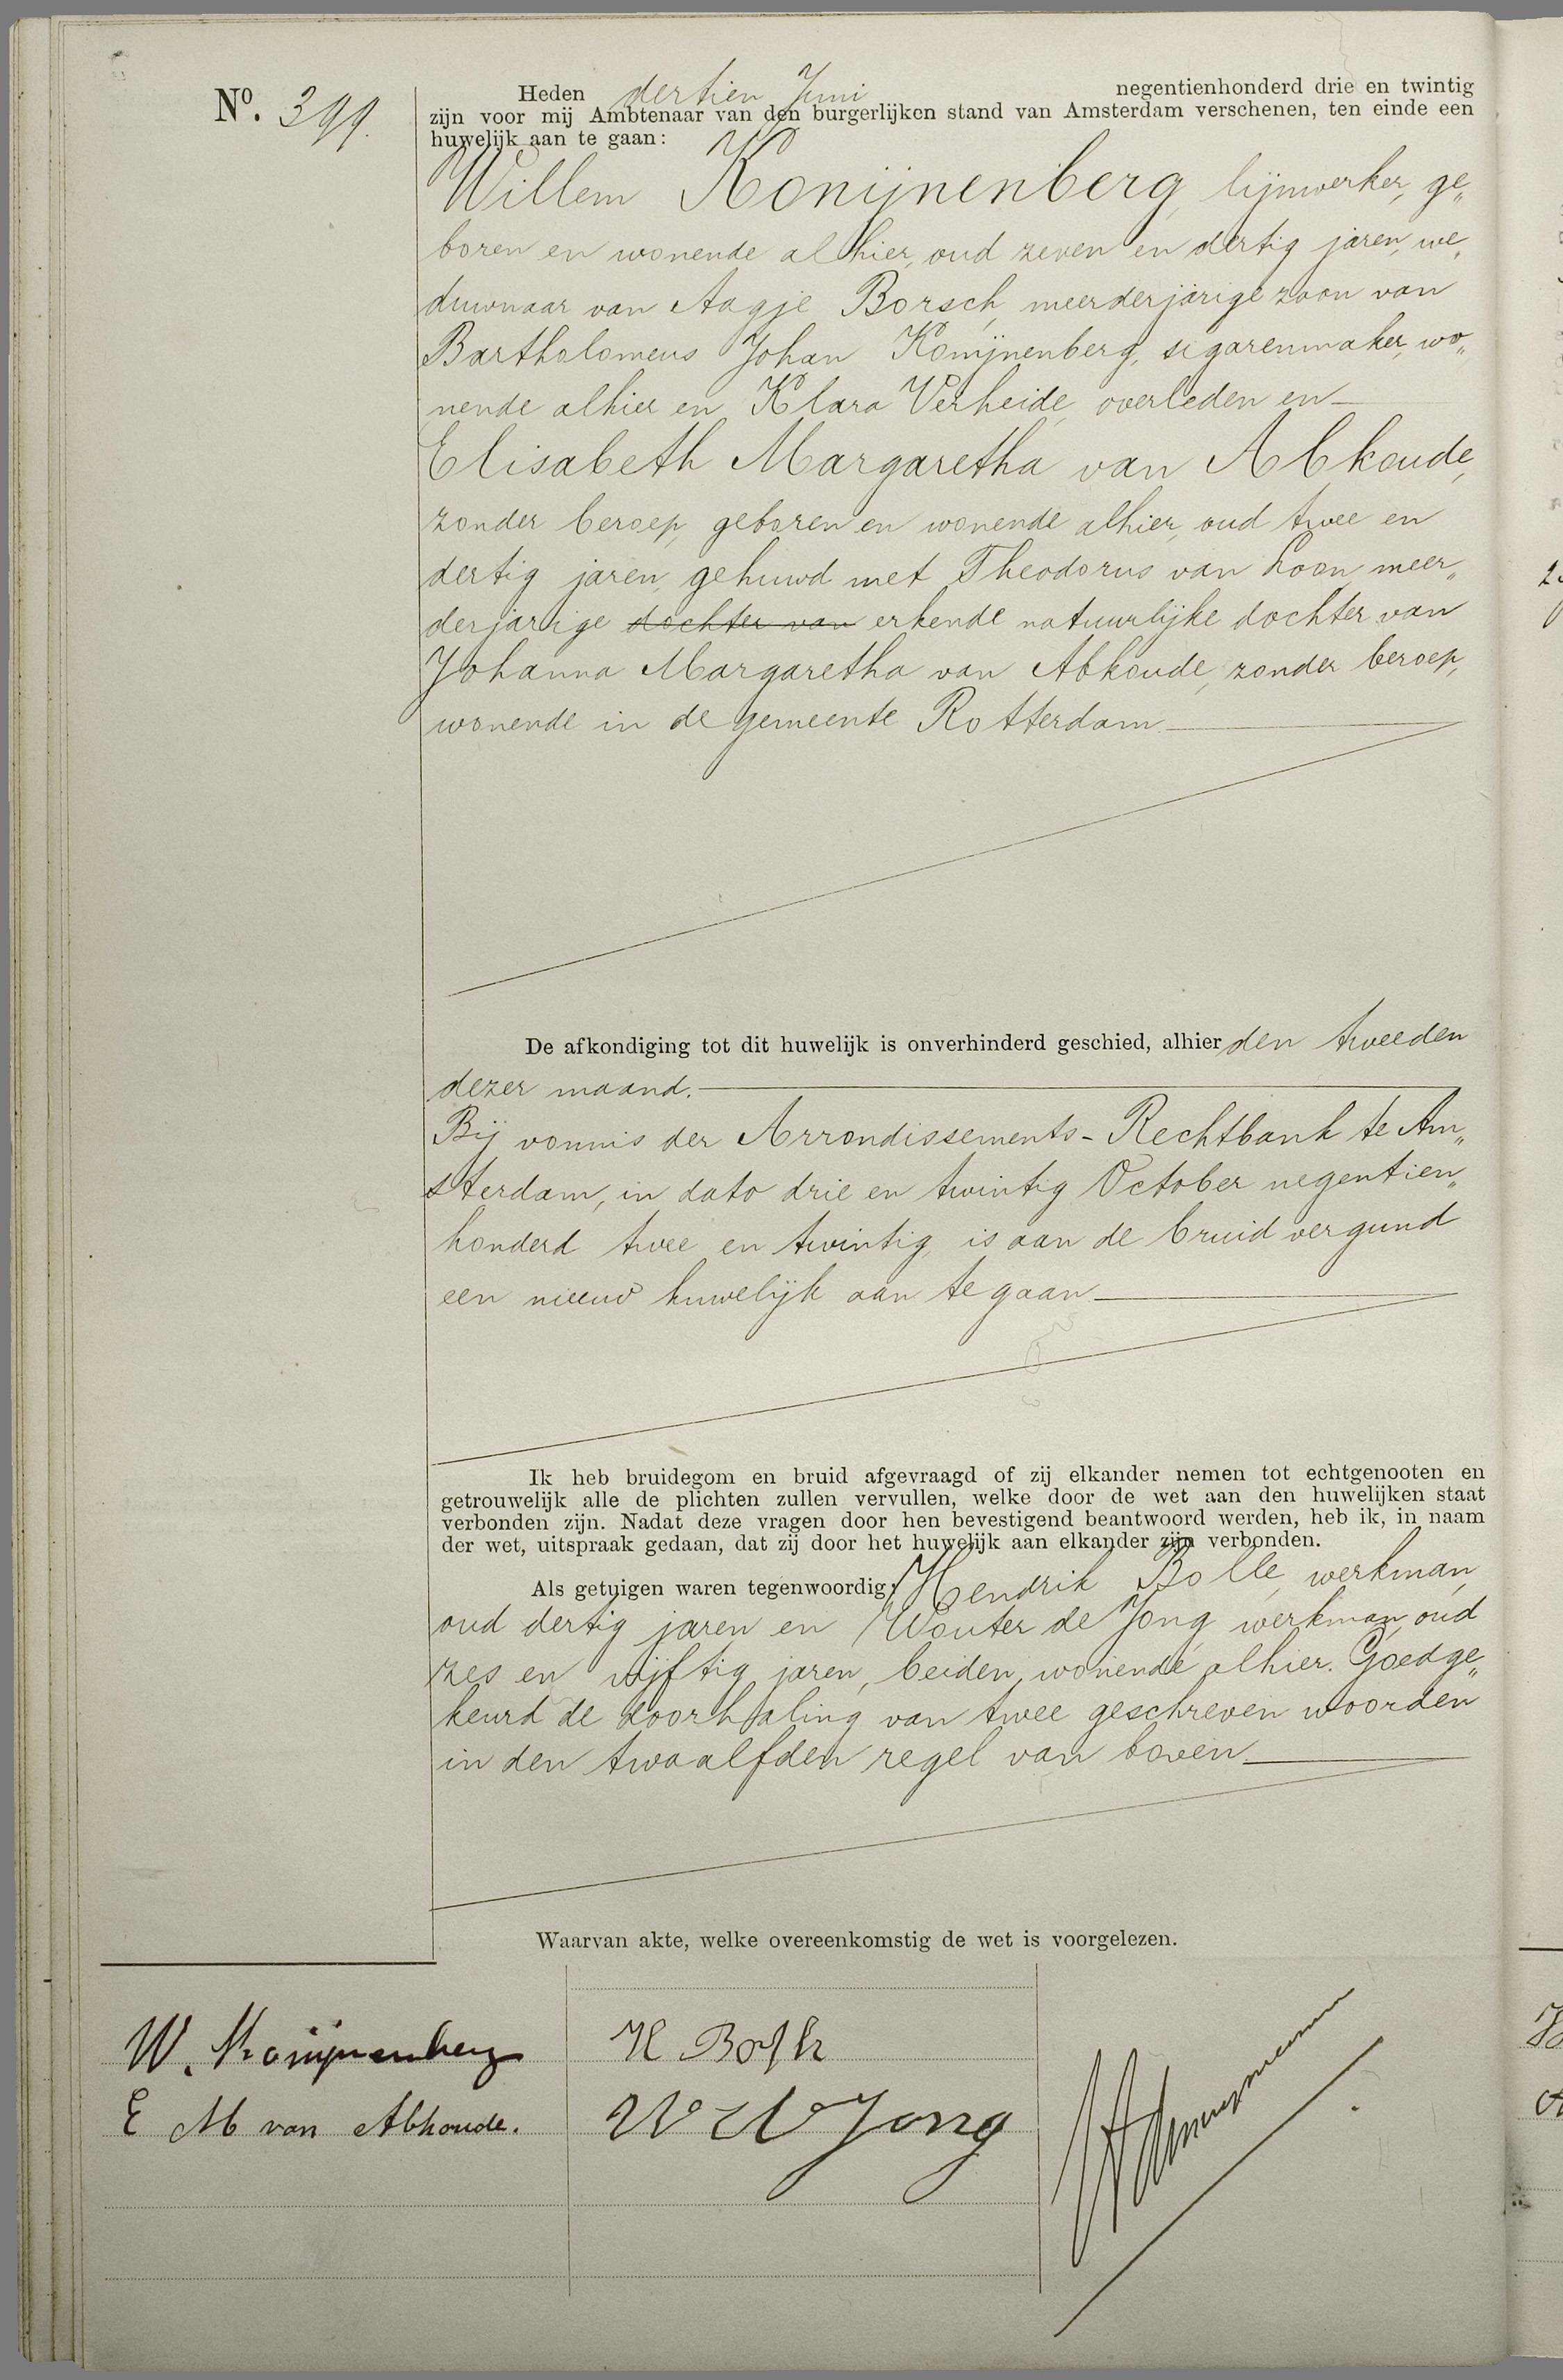 Nº. 399.
Heden dertien Juni negentienhonderd drie en twintig
zijn voor mij Ambtenaar van den burgerlijken stand van Amsterdam verschenen, ten einde een
huwelijk aan te gaan:
Willem Konijnenberg, lijnwerker, ge„
boren en wonende alhier, oud zeven en dertig jaren, we„
duwnaar van Aagje Borsch, meerderjarige zoon van
Bartholomeus Johan Konijnenberg, sigarenmaker, wo„
nende alhier en Klara Verheide, overleden en
Elisabeth Margaretha van Abkoude,
zonder beroep, geboren en wonende alhier, oud twee en
dertig jaren, gehuwd met Theodorus van Loon, meer„
derjarige dochter van erkende natuurlijke dochter van
Johanna Margaretha van Abkoude, zonder beroep,
wonende in de gemeente Rotterdam
De afkondiging tot dit huwelijk is onverhinderd geschied, alhier den tweeden
dezer maand.
Bij vonnis der Arrondissements-Rechtbank te Am„
sterdam, in dato drie en twintig October negentien„
honderd twee en twintig, is aan de bruid vergund
een nieuw huwelijk aan te gaan
Ik heb bruidegom en bruid afgevraagd of zij elkander nemen tot echtgenooten en
getrouwelijk alle de plichten zullen vervullen, welke door de wet aan den huwelijken staat
verbonden zijn. Nadat deze vragen door hen bevestigend beantwoord werden, heb ik, in naam
der wet, uitspraak gedaan, dat zij door het huwelijk aan elkander zijn verbonden.
Als getuigen waren tegenwoordig: Hendrik Bolle, werkman,
oud dertig jaren en Wouter de Jong, werkman, oud
zes en vijftig jaren, beiden wonende alhier. Goedge„
keurd de doorhaling van twee geschreven woorden
in den twaalfden regel van boven
Waarvan akte, welke overeenkomstig de wet is voorgelezen.
W. Konijnenberg
H
E M van Abkoude.
Jong